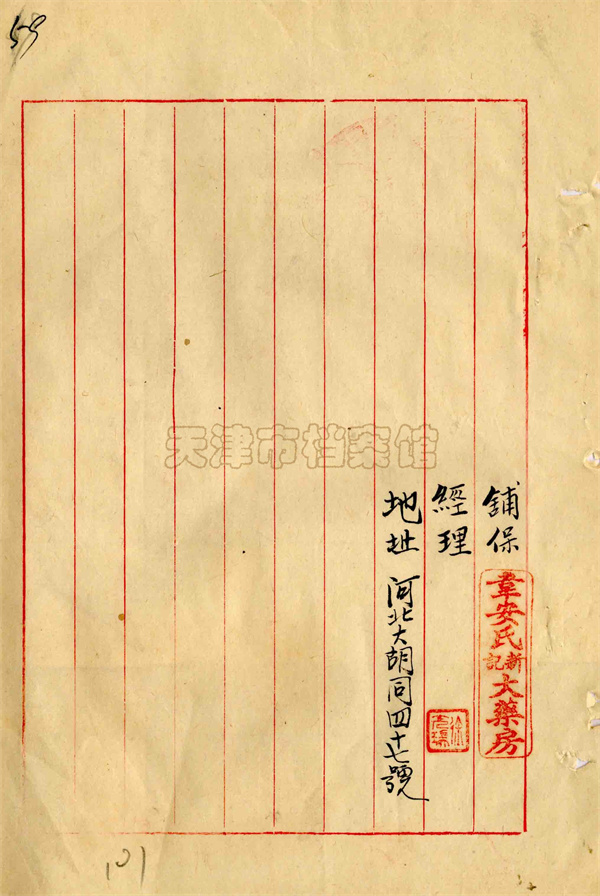 59
舖保 韋安氏新記大藥房
經理
地址 河北大胡同四十七號
天津市档案馆
101